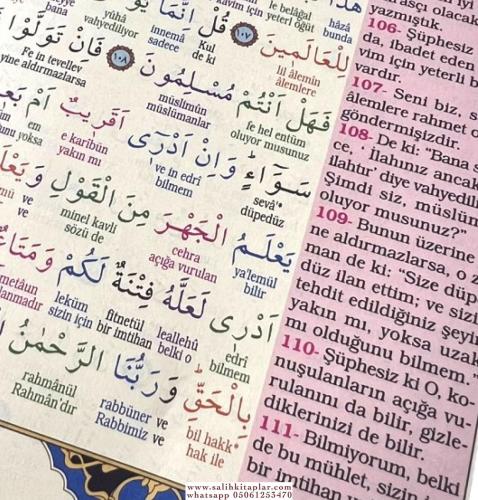 هٰذَا
yüha
vahyediliyor
innemâ
sadece
kavim için
le belâğal
yeterli öğüt
hâzâ
bunda
لِلْعَالَمِينَ ﴿١٠٧﴾ قُلْ اِنَّمَا
lil âlemin
âlemlere
Kul
de ki
فَهَلْ اَنْتُمْ مُسْلِمُونَ ﴿١٠٨﴾ فَاِنْ تَوَلَّوْا
fe hel entüm
oluyor musunuz
müslimûn
müslümanlar
Fe in tevellev
yine aldırmazlarsa
سَوَاءٍ وَاِنْ اَدْرٰى اَقَرِيبٌ اَمْ
sevâ'*
düpedüz
ve in edrî
bilmem
e karibün
yakın mı
em
yoksa
يَعْلَمُ الْجَهْرَ مِنَ الْقَوْلِ
ya'lemül
bilir
cehra
açığa vurulan
minel kavli
sözü de
ve
ve
اَدْرٰى لَعَلَّهُ فِتْنَةٌ لَكُمْ وَمَتَاعٌ
edrî
bilmem
leallehû
belki o
fitnetül
bir imtihan
leküm
sizin için
بِالْحَقِّ وَرَبُّنَا الرَّحْمٰنُ
bil hakk*
hak ile
rabbüner ve
Rabbimiz ve
rahmânül
Rahmân'dır
yazmıştık.
106- Şüphesiz
da, ibadet eden
vim için yeterli b
vardır.
107- Seni biz, s
âlemlere rahmet o
göndermişizdir.
108- De ki: “Bana s
ce, ‘ İlahınız ancak
ilahtır’ diye vahyedil
Şimdi siz, müslüm
oluyor musunuz?”
109- Bunun üzerine
ne aldırmazlarsa, o z
man de ki: “Size düp
düz ilan ettim; ve sizi
tehdit edildiğiniz şeyi
yakın mı, yoksa uzak
mı olduğunu bilmem.”
110- Şüphesiz ki O, ko-
nuşulanların açığa vu-
rulanını da bilir, gizle-
diklerinizi de bilir.
111- Bilmiyorum, belki
de bu mühlet, sizin
bir imtihan
www.salihkitaplar.com
whatsapp 05061253470